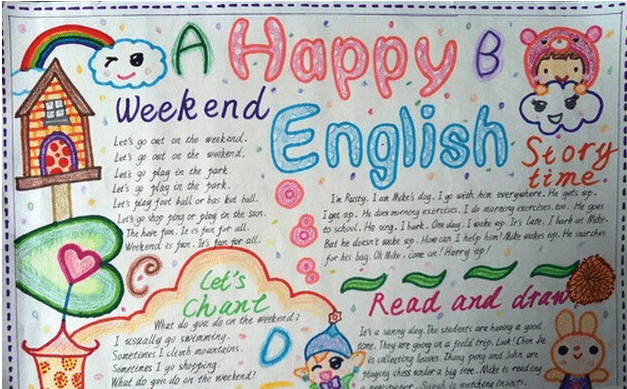 A Happy B
Weekend
English
Let's go out on the weekend.
Let's go out on the weekend.
Let's go play in the park.
Let's go play in the park.
Let's play foot ball or bas ket ball.
Let's go shop ping or play in the sun.
The have fun. It is fun for all.
Weekend is fun. It's fun for all.
Story
time.
I'm Rusty. I am Mike's dog. I go with him everywhere. He gets up.
I get up. He does morning exercises. I do morning exercises, too. He goes
to school. He song. I bark. One day, I wake up. It's late. I bark at Mike.
But he doesn't wake up. How can I help him? Mike wakes up. He searches
for his bag. Oh Mike, come on! Harry up!
C
Let's
Chant
What do you do on the weekend?
I usually go swimming.
Sometimes I climb mountains.
Sometimes I go shopping.
What do you do on the weekend?
D
Read and draw
It's a sunny day. The students are having a good
time. They are going on a field trip. Look! Chen Jie
is collecting leaves. Zhang peng and John are
playing chess under a big tree. Mike is reading
a newspaper. Sarah is